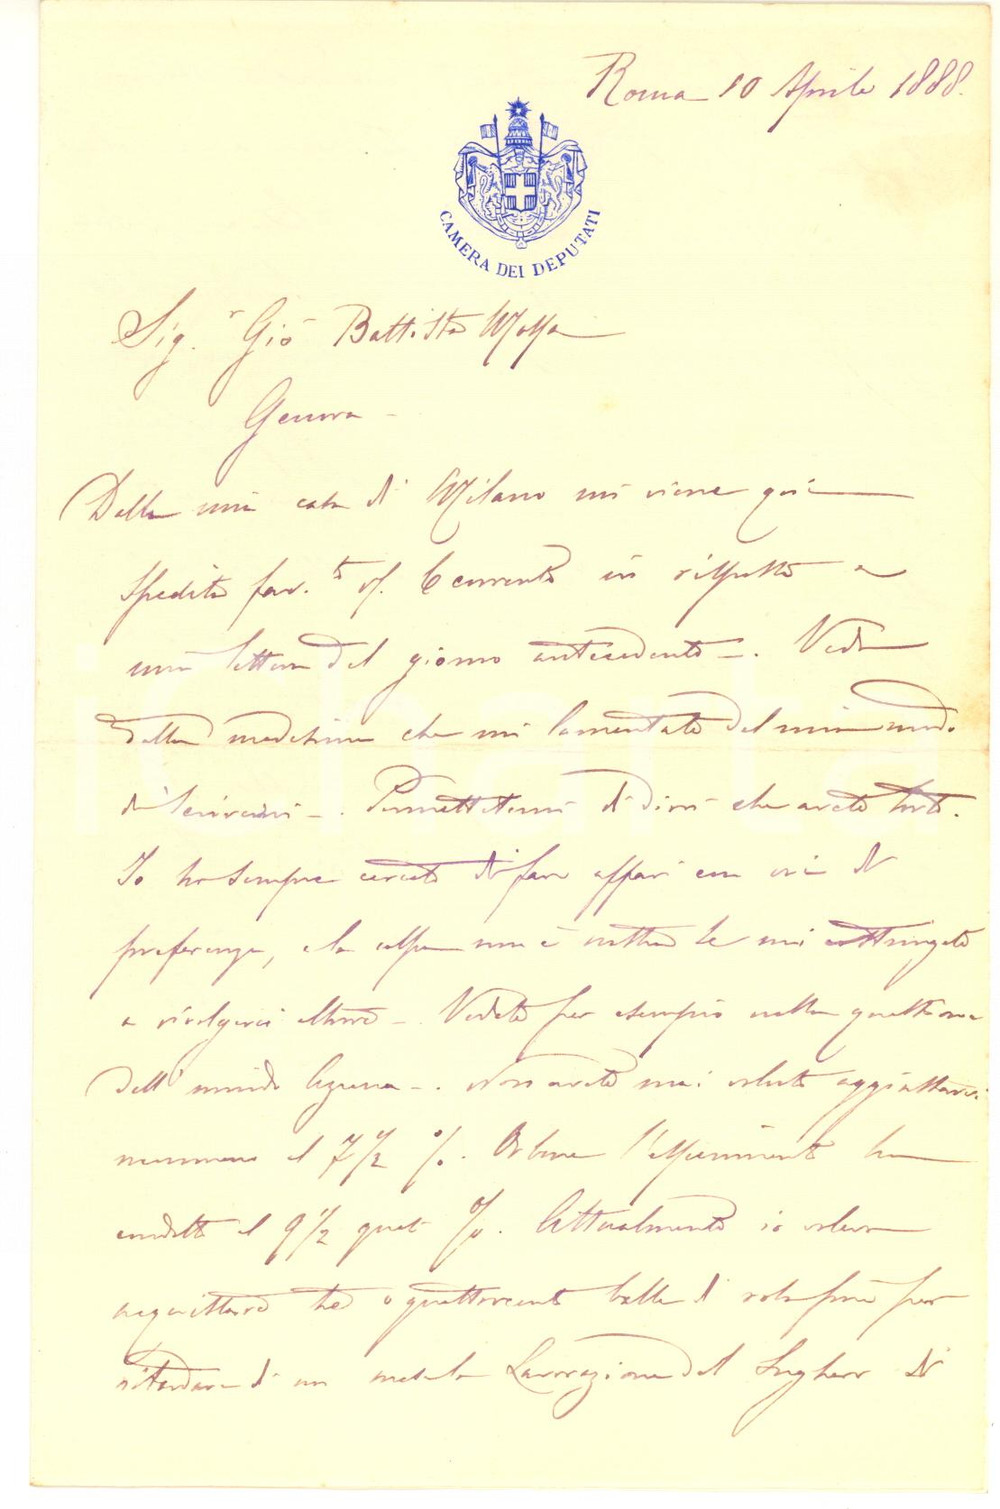 Roma 10 Aprile 1888.
CAMERA DEI DEPUTATI
Sig.r Gio Battista
Genova
Dalla mia casa di Milano mi viene qui
spedita fav.ta 6 corrente in risposta a
mia lettera del giorno antecedente. Vedo
dalla medesima che mi lamentate del mio modo
di scrivervi. Permettetemi di dirvi che avete torto.
Io ho sempre cercato di fare affari con voi di
preferenza, e la colpa non è vostra se mi costringete
a rivolgermi altrove. Vedete per esempio nella questione
dell'. Non avete mai voluto
nemmeno il 7 1/2 %. Orbene l'esperimento ha
condotto al 9 1/2 quasi %. Attualmente io voleva
acquistare tre o quattrocento balle di per
di un metodo Lavorazione del Sughero di